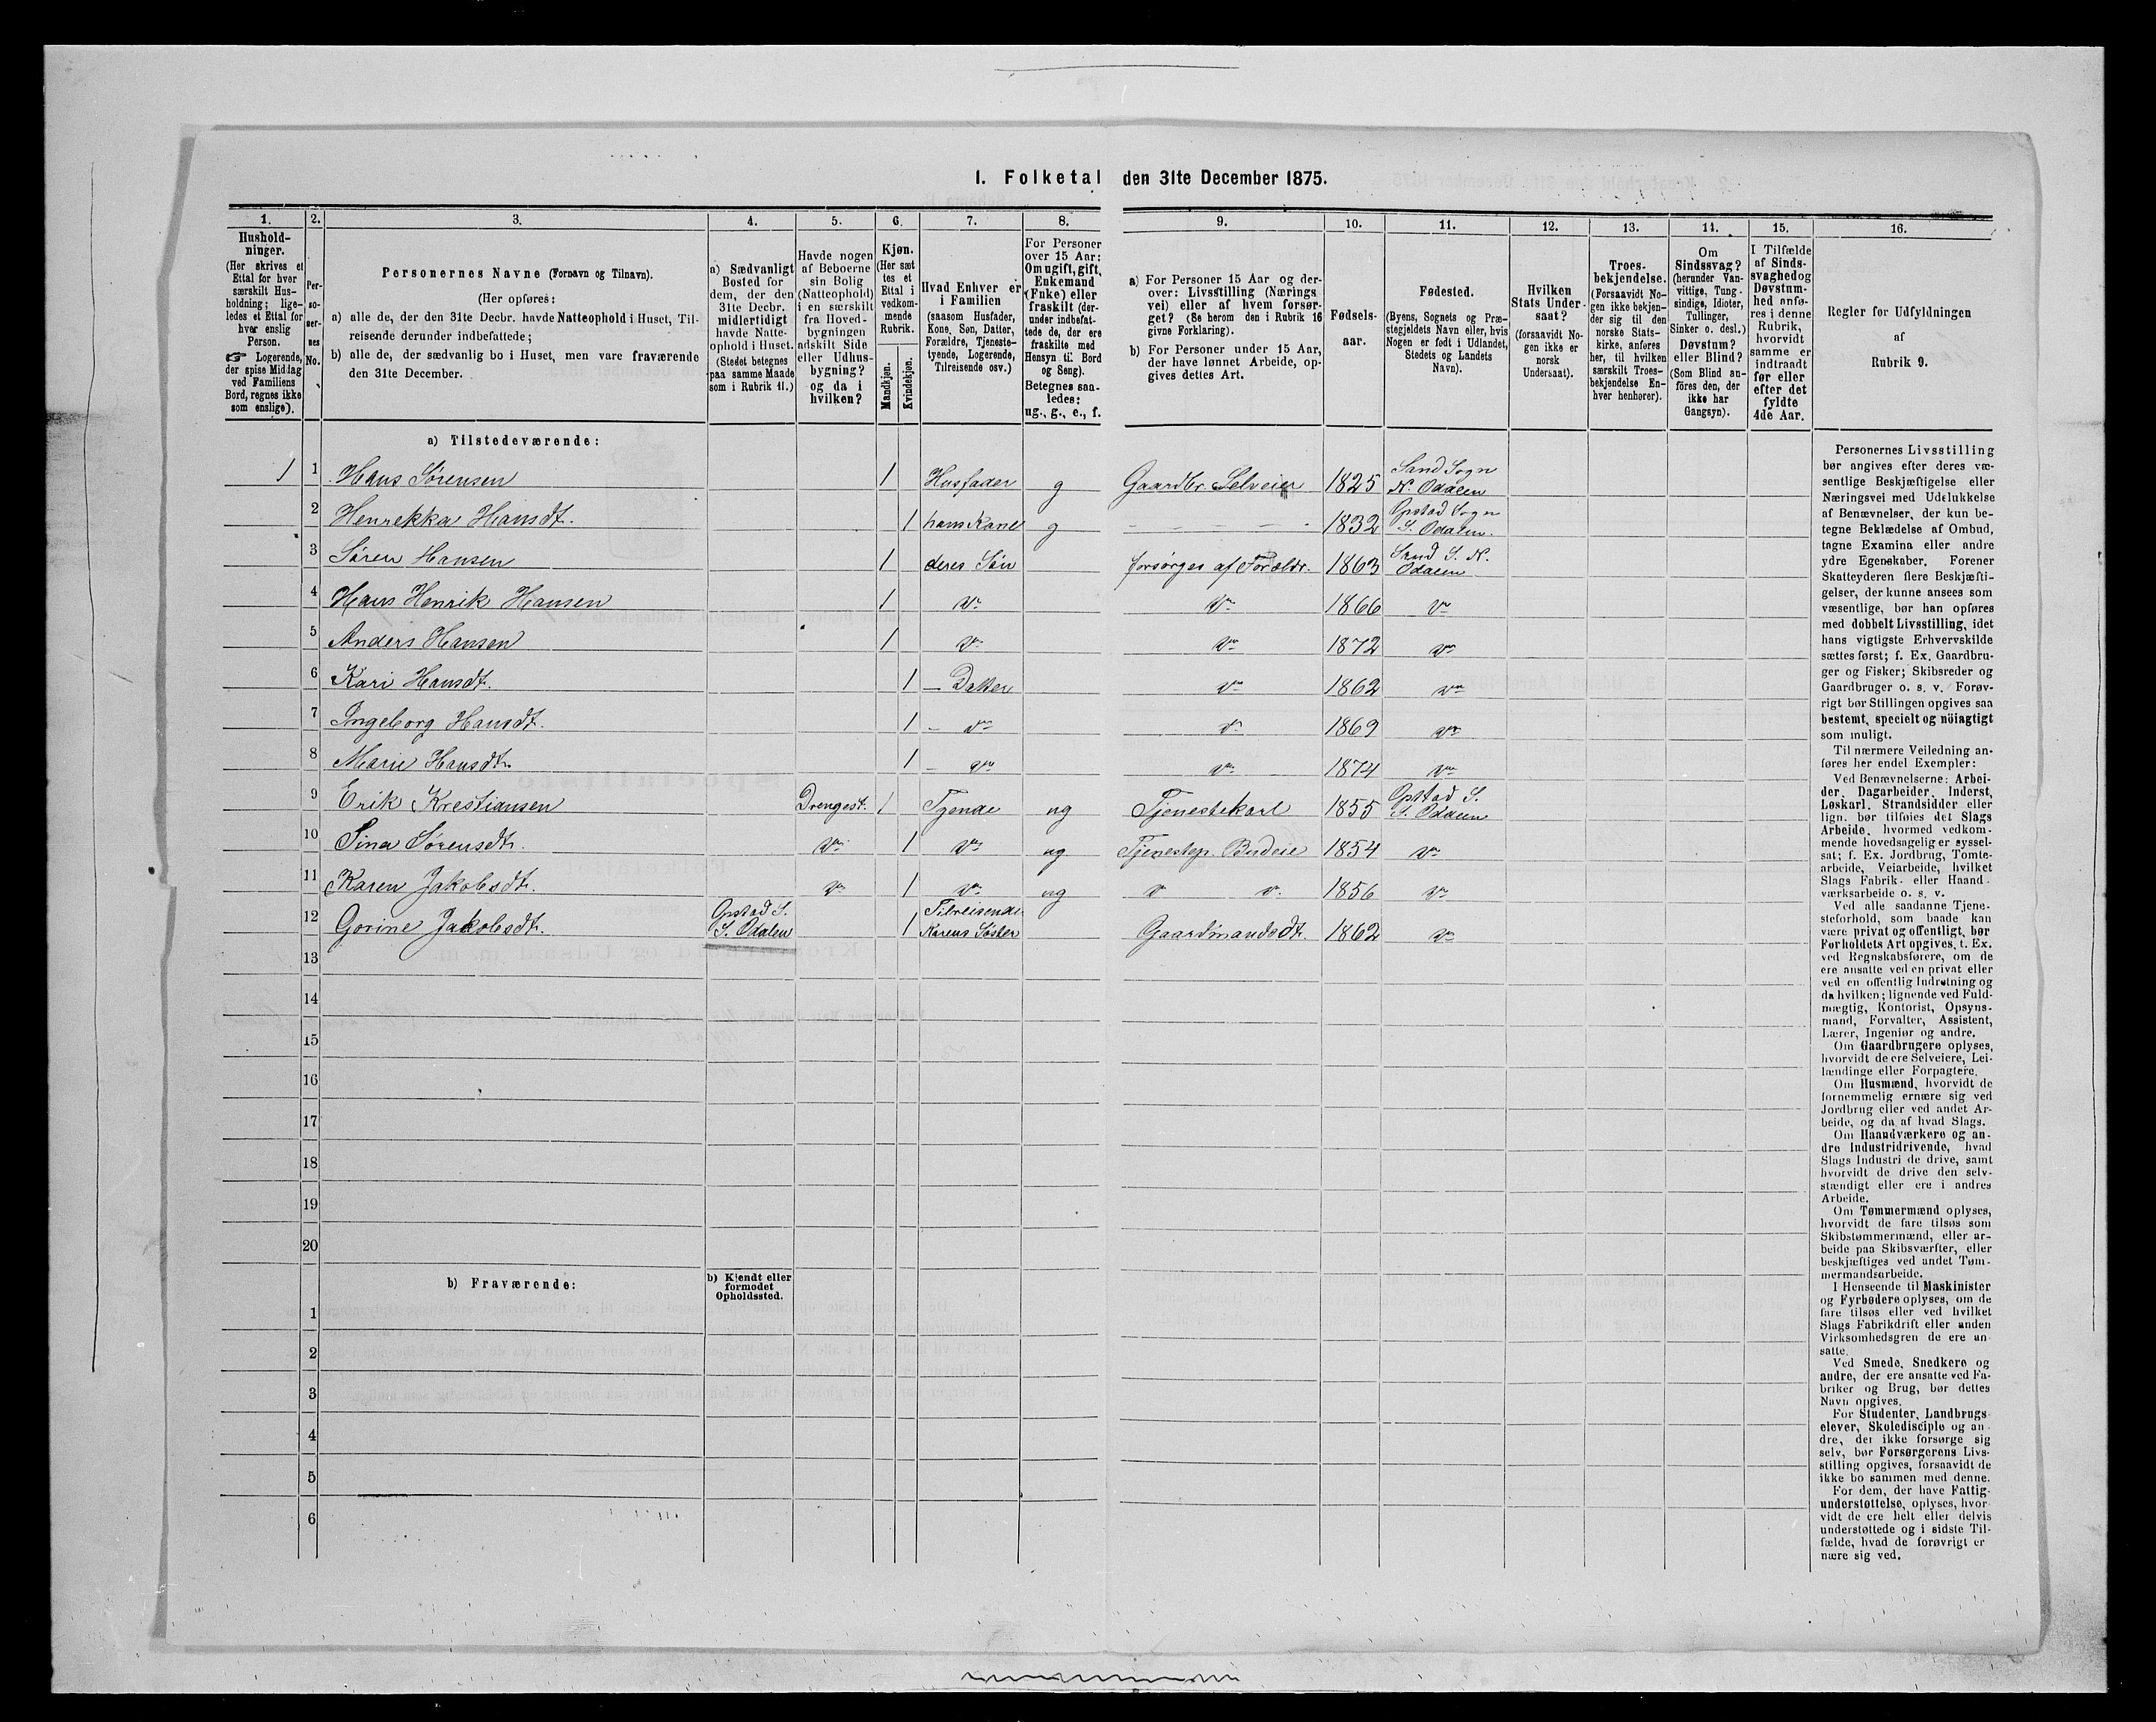 1. Folketal den 31te December 1875.
1. 2. 3. 4. 5. 6. 7. 8. 9. 10. 11. 12. 13. 14. 15. 16.
Hushold-
ninger.
(Her skrives et
Ettal for hver
særskilt Hus-
holdning; lige-
ledes et Ettal for
hver enslig
Person.
☞ Logerende,
der spise Middag
ved Familiens
Bord, regnes ikke
som enslige).
Per-
so-
ner-
nes
No.
Personernes Navne (Fornavn og Tilnavn).
(Her opføres:
a) alle de, der den 31te Decbr. havde Natteophold i Huset, Til-
reisende derunder indbefattede;
b) alle de, der sædvanlig bo i Huset, men vare fraværende
den 31te December.
a) Sædvanligt
Bosted for
dem, der den
31te Decbr.
midlertidigt
havde Natte-
ophold i Huset.
(Stedet betegnes
paa samme Maade
som i Rubrik 11.)
Havde nogen
af Beboerne
sin Bolig
(Natteophold)
i en særskilt
fra Hoved-
bygningen
adskilt Side
eller Udhus-
bygning?
og da i
hvilken?
Kjøn.
(Her sæt
tes et
Ettal i
vedkom-
mende
Rubrik.
Mandkjøn.
Kvindekjøn.
Hvad Enhver er
i Familien
(saasom Husfader,
Kone, Søn, Datter,
Forældre, Tjeneste-
tyende, Logerende,
Tilreisende osv.)
For Personer
over 15 Aar:
Om ugift, gift,
Enkemand
(Enke) eller
fraskilt (der-
under indbefat-
tede de, der ere
fraskilte med
Hensyn til Bord
og Seng).
Betegnes saa-
ledes:
ug., g., e., f.
a) For Personer 15 Aar og der-
over: Livsstilling (Nærings
vei) eller af hvem forsør-
get? (Se herom den i Rubrik 16
givne Forklaring).
b) For Personer under 15 Aar,
der have lønnet Arbeide, op-
gives dettes Art.
Fødsels-
aar.
Fødested.
(Byens, Sognets og Præ-
stegjeldets Navn eller, hvis
Nogen er født i Udlandet,
Stedets og Landets
Navn).
Hvilken
Stats Under-
saat?
(forsaavidt No-
gen ikke er
norsk
Undersaat).
Troes-
bekjendelse.
(Forsaavidt No-
gen ikke bekjen-
der sig til den
norske Stats-
kirke, anføres
her, til hvilken
særskilt Troes-
bekjendelse En-
hver henhører).
Om
Sindssvag?
(herunder Van-
vittige, Tung-
sindige, Idioter,
Tullinger,
Sinker o. desl.)
Døvstum?
eller Blind?
(Som Blind an-
føres den, der
ikke har
Gangsyn).
I Tilfælde
af Sinds-
svaghed og
Døvstum-
hed anfø-
res i denne
Rubrik,
hvorvidt
samme er
indtraadt
før eller
efter det
fyldte
4de Aar.
Regler for Udfyldningen
af
Rubrik 9.
a) Tilstedeværende:
1 1 Hans Sørensen 1 Husfader g Gaardbr. Selveier 1825 Sand Sogn N. Odalen
2 Henrekka Hansdt. 1 hans Kone g - - - - 1832 Opstad Sogn S. Odalen.
3 Søren Hansen 1 deres Søn forsørges af Forældr. 1863 Sand S. N. Odalen
4 Hans Henrik Hansen 1 do do 1866 do
5 Anders Hansen 1 do do 1872 do
6 Kari Hansdt. 1 - Datter do 1862 do
7 Ingeborg Hansdt. 1 - do do 1869 do
8 Marie Hansdt. 1 - do do 1874 do
9 Erik Krestiansen Drengest. 1 Tyende ug Tjenestekarl 1855 Opstad S. S. Odalen
10 Sina Sørensdt. do 1 do ug Tjenestep. Budeie 1854 do
11 Karen Jakobsdt. do 1 do ug do do 1856 do
12 Gorine Jakobsdt. Opstad S. S. Odalen 1 Tilreisende Karens Søster Gaardmandsdt. 1862 do
13
14
15
16
17
18
19
20
b) Fraværende:
b) Kjendt eller
formodet
Opholdssted.
1
2
3
4
5
6
Personernes Livsstilling
bør angives efter deres væ-
sentlige Beskjæftigelse eller
Næringsvei med Udelukkelse
af Benævnelser, der kun be-
tegne Beklædelse af Ombud,
tagne Examina eller andre
ydre Egenskaber. Forener
Skatteyderen flere Beskjæfti-
gelser, der kunne ansees som
væsentlige, bør han opføres
med dobbelt Livsstilling, idet
hans vigtigste Erhvervskilde
sættes først; f. Ex. Gaardbru-
ger og Fisker; Skibsreder og
Gaardbruger o. s. v. Forøv-
rigt bør Stillingen opgives saa
bestemt, specielt og nöiagtigt
som muligt.
Til nærmere Veiledning an-
føres her endel Exempler:
Ved Benævnelserne: Arbei-
der, Dagarbeider, Inderst,
Løskarl, Strandsidder eller
lign. bør tilføies det Slags
Arbeide, hvormed vedkom-
mende hovedsagelig er syssel-
sat; f. Ex. Jordbrug, Tomte-
arbeide, Veiarbeide, hvilket
Slags Fabrik- eller Haand-
værksarbeide o. s. v.
Ved alle saadanne Tjene-
steforhold, som baade kan
være privat og offentligt, bør
Forholdets Art opgives, t. Ex.
ved Regnskabsførere, om de
ere ansatte ved en privat eller
ved en offentlig Indretning og
da hvilken; lignende ved Fuld-
mægtig, Kontorist, Opsyns-
mand, Forvalter, Assistent,
Lærer, Ingeniør og andre.
Om Gaardbrugere oplyses,
hvorvidt de ere Selveiere, Lei-
lændinge eller Forpagtere.
Om Husmænd, hvorvidt de
fornemmelig ernære sig ved
Jordbrug eller ved andet Ar-
beide, og da af hvad Slags.
Om Haandværkere og an-
dre Industridrivende, hvad
Slags Industri de drive, samt
hvorvidt de drive den selv-
stændigt eller ere i andres
Arbeide.
Om Tømmermænd oplyses,
hvorvidt de fare tilsøs som
Skibstømmermænd, eller ar-
beide paa Skibsværfter, eller
beskjæftiges ved andet Tøm-
mermandsarbeide.
I Henseende til Maskinister
og Fyrbødere oplyses, om de
fare tilsøs eller ved hvilket
Slags Fabrikdrift eller anden
Virksomhedsgren de ere an-
satte.
Ved Smede, Snedkere og
andre, der ere ansatte ved Fa-
briker og Brug, bør dettes
Navn opgives.
For Studenter, Landbrugs-
elever, Skoledisciple og an-
dre, der ikke forsørge sig
selv, bør Forsørgerens Livs-
stilling opgives, forsaavidt de
ikke bo sammen med denne.
For dem, der have Fattig-
understøttelse, oplyses, hvor-
vidt de ere helt eller delvis
understøttede og i sidste Til-
fælde, hvad de forøvrigt er
nære sig ved.